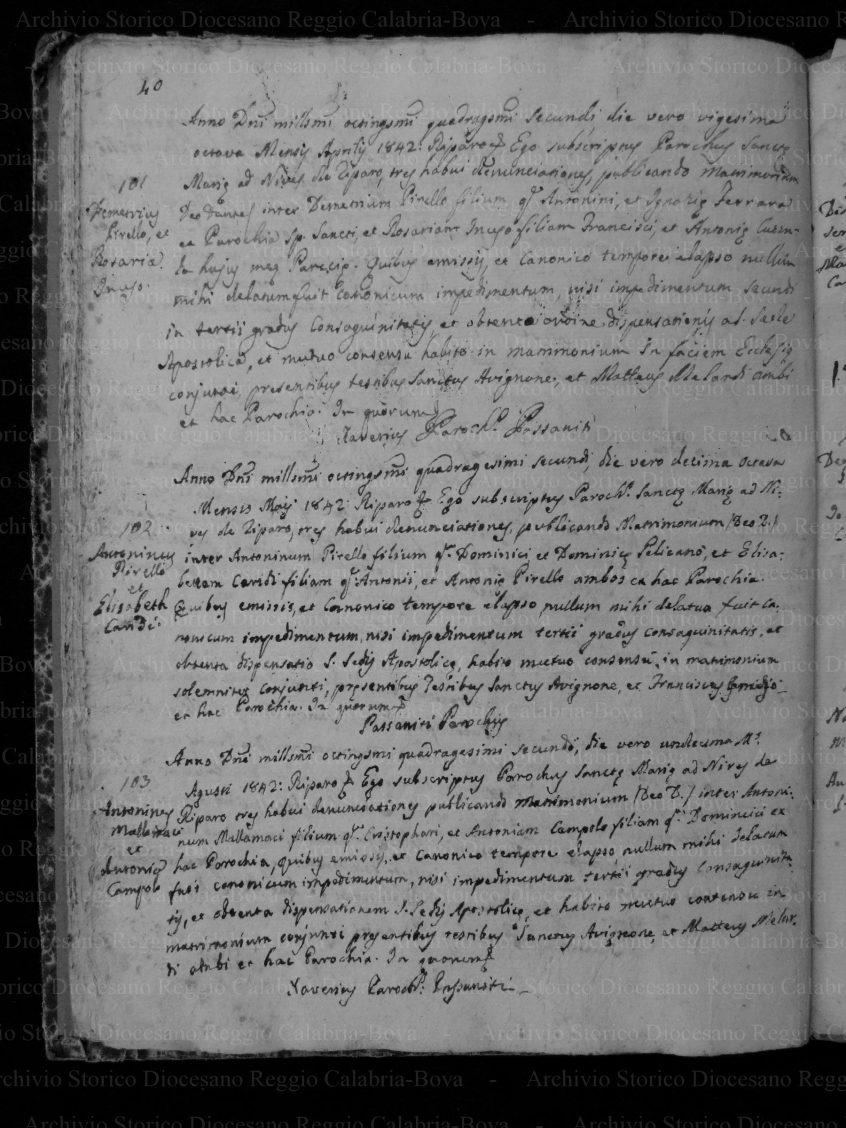 40
Anno Dni millsmi octingsmi quadragsmi secundi die vero vigesima
octava Mensis Aprilis 1842: Riparo Ego subscriptus Parochus Sanctę
101
Marię ad Nives de Riparo, tres habui denunciationes, publicando matrimonium
Demetrius
Deo Dantes inter Demetrium Pirello filium qm Antonini, et Ignazię Ferrara
Pirello, et
ex Parochia Sp. Sancti, et Rosariam Inuso filiam Francisci, et Antonię
Rosaria
hujus meę Quibus emissis, et canonico tempore elapso nullum
Inuso.
mihi delatum fuit canonicum impedimentum, nisi impedimentum secundi
in tertii gradus Consaguinitatis et obtento ordine dispensationis a S. Sede
Apostolica, et mutuo consensu habito in matrimonium In faciem Ecclesię
conjuncti, presentibus testibus Sanctus Avignone, et Matteus Melandi ambi
ex hac Parochia. In quorum
Xaverius Paroch. Passaniti
Anno Dni millsmi octingsmi quadragesimi secundi die vero decima octava
Mensis Maij 1842: Riparo Ego subscriptus Paroch. Sanctę Marię ad Ni-
102
ves de Riparo, tres habui denunciationes, publicando Matrimonium (Deo D.)
Antoninus
Pirello
inter Antoninum Pirello filium qm Dominici, et Dominicę Pelicanò, et Elisa-
et
bettam Caridi filiam qm Antonii, et Antonię Pirello ambos ex hac Parochia.
Elisabeth
Caridi.
Quibus emissis, et Canonico tempore elapso, nullum mihi delatum fuit ca-
nonicum impedimentum, nisi impedimentum tertii gradus consaguinitatis, et
obtenta dispensatio S. Sedis Apostolicę, habito mutuo consensu, in matrimonium
solemniter conjuncti, pręsentibus Testibus Sanctus Avignone, et Franciscus
ex hac Parochia. In quorum
Passaniti Parochus
Anno Dni millsmi octingsmi quadragesimi secundi, die vero undecima Ms.
103
Agusti 1842: Riparo Ego subscriptus Parochus Sanctę Marię ad Nives de
Antoninus
Riparo tres habui denunciationes publicando matrimonium (Deo D.) inter Antoni-
Mallamaci
num Mallamaci filium qm Cristophari, et Antoniam Campolo filiam qm Dominici ex
et
Antonię
hac Parochia, quibus emissis, et canonico tempore elapso nullum mihi delatum
Campolo
fuit canonicum impedimentum, nisi impedimentum tertii gradus Consaguinita-
tis, et obtenta dispensationem S. Sedis Apostolicę, et habito mutuo contensu in
matrimonium conjuncti pręsentibus testibus Sanctus Avignone, et Matteus Melan-
di ambi ex hac Parochia. In quorum
Xaverius Paroch. Passaniti
Archivio Storico Diocesano Reggio Calabria-Bova